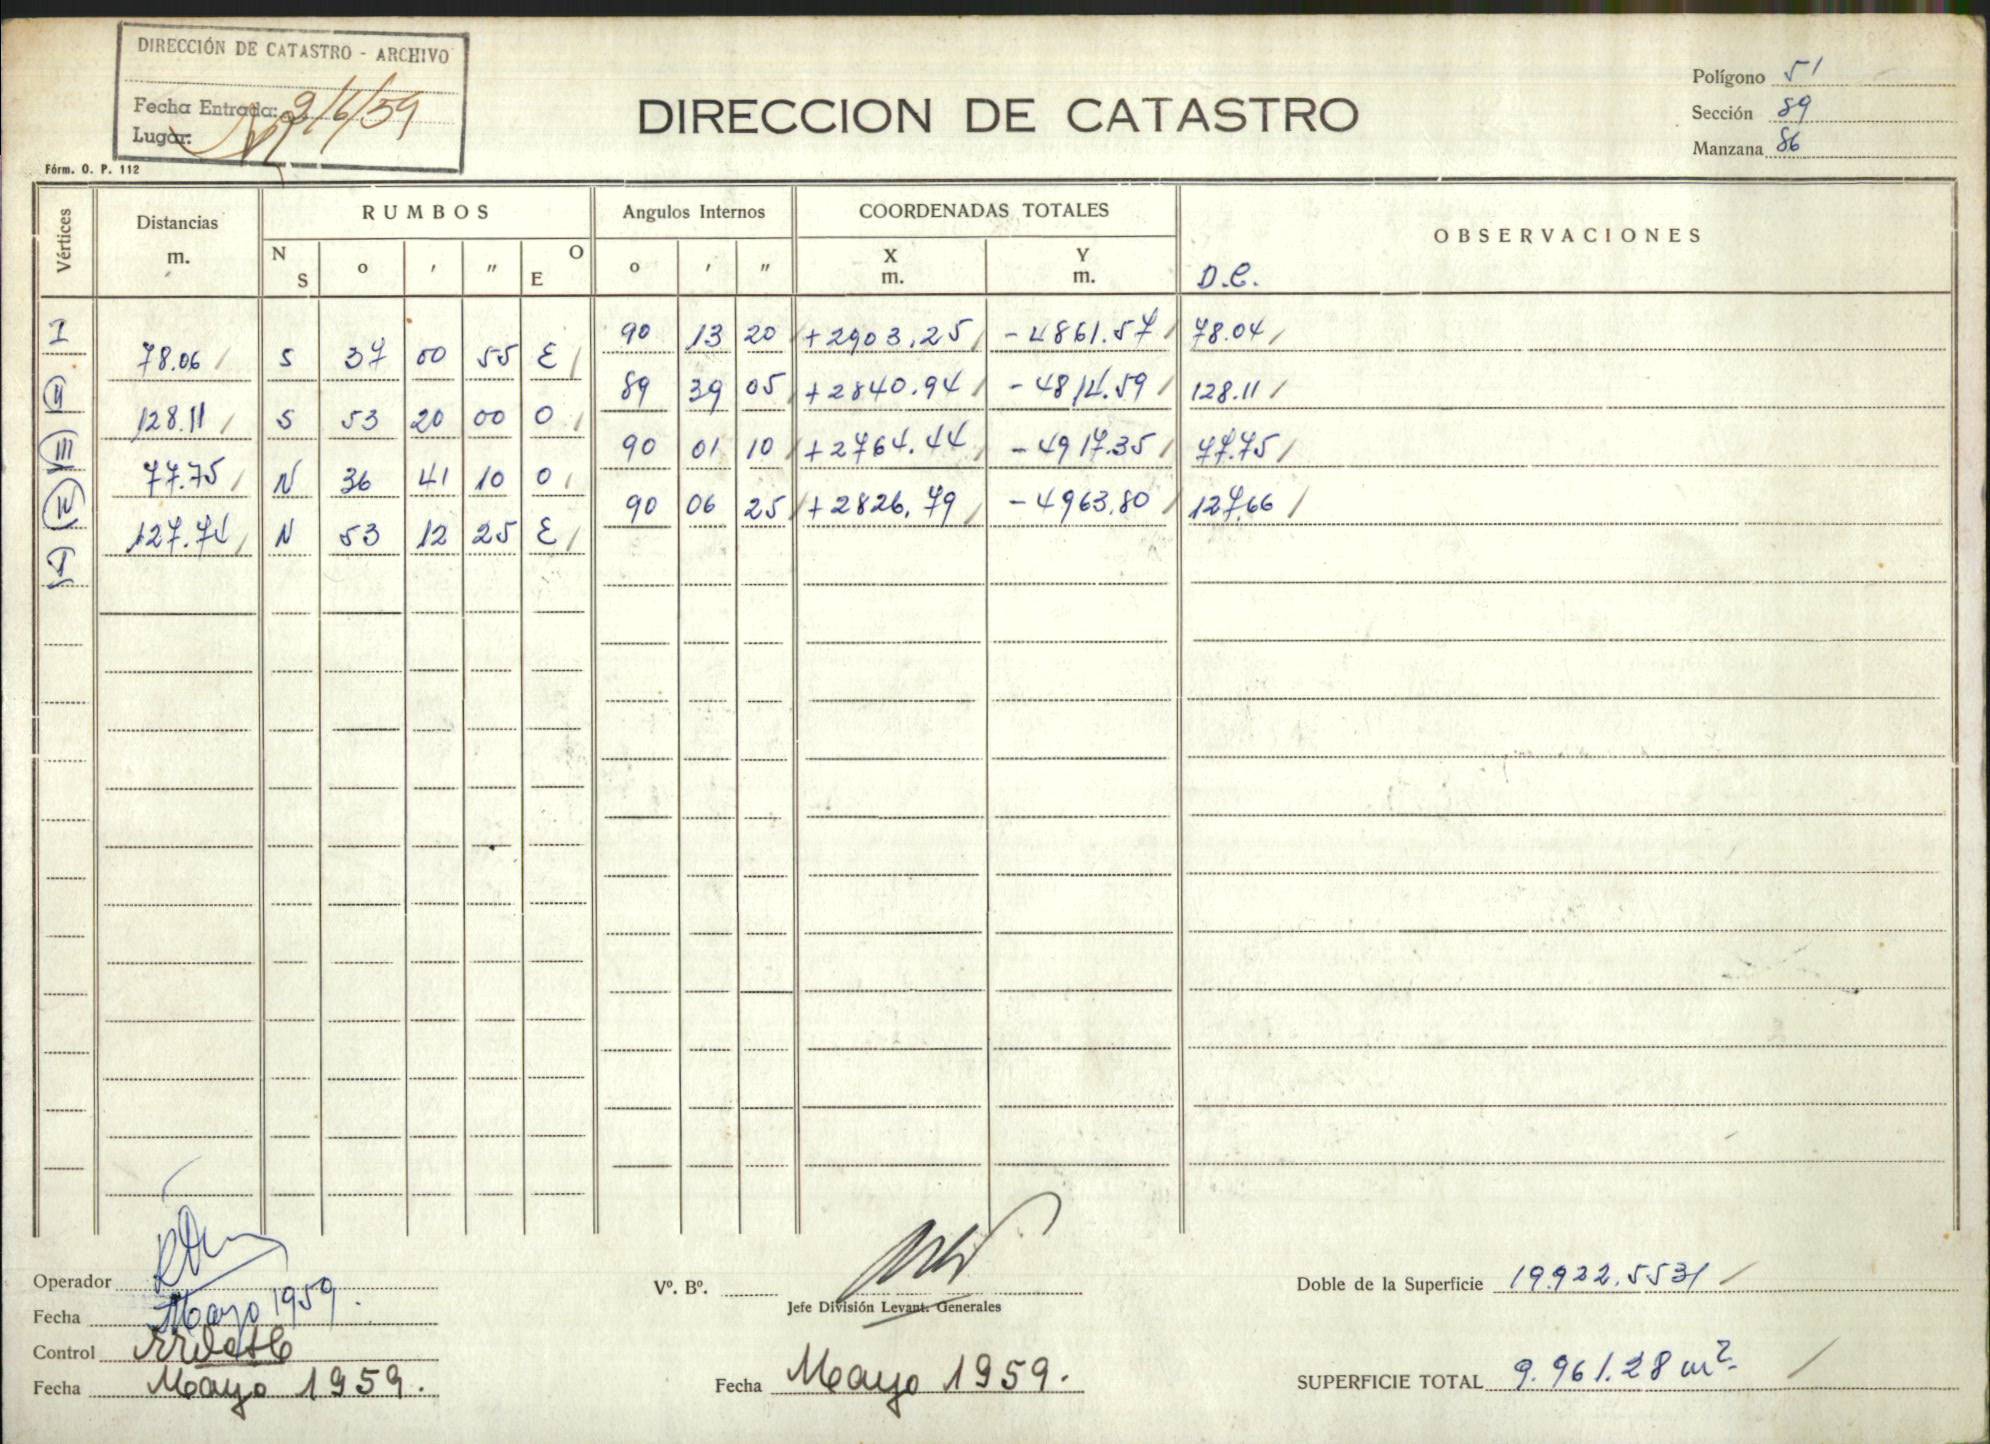 DIRECCIÓN DE CATASTRO - ARCHIVO
Fecha Entrada: 9/6/59
Lugar:
Fórm. O. P. 112
DIRECCION DE CATASTRO
Polígono 51
Sección 89
Manzana 86
Vértices Distancias m. RUMBOS Angulos Internos COORDENADAS TOTALES OBSERVACIONES
N S o ' " O E o ' " X m. Y m. D.C.
I 90 13 20 +2903.25 -4861.57 78.04
78.06 S 37 00 55 E
II 89 39 05 +2840.94 -4814.59 128.11
128.11 S 53 20 00 O
III 90 01 10 +2764.44 -4917.35 77.75
77.75 N 36 41 10 O
IV 90 06 25 +2826.79 -4963.80 127.66
N 53 12 25 E
I
Operador
Fecha Mayo 1959.
Control
Fecha Mayo 1959.
Vº. Bº.
Jefe División Levant. Generales
Fecha Mayo 1959.
Doble de la Superficie 19.922.5531
SUPERFICIE TOTAL 9.961.28 m².